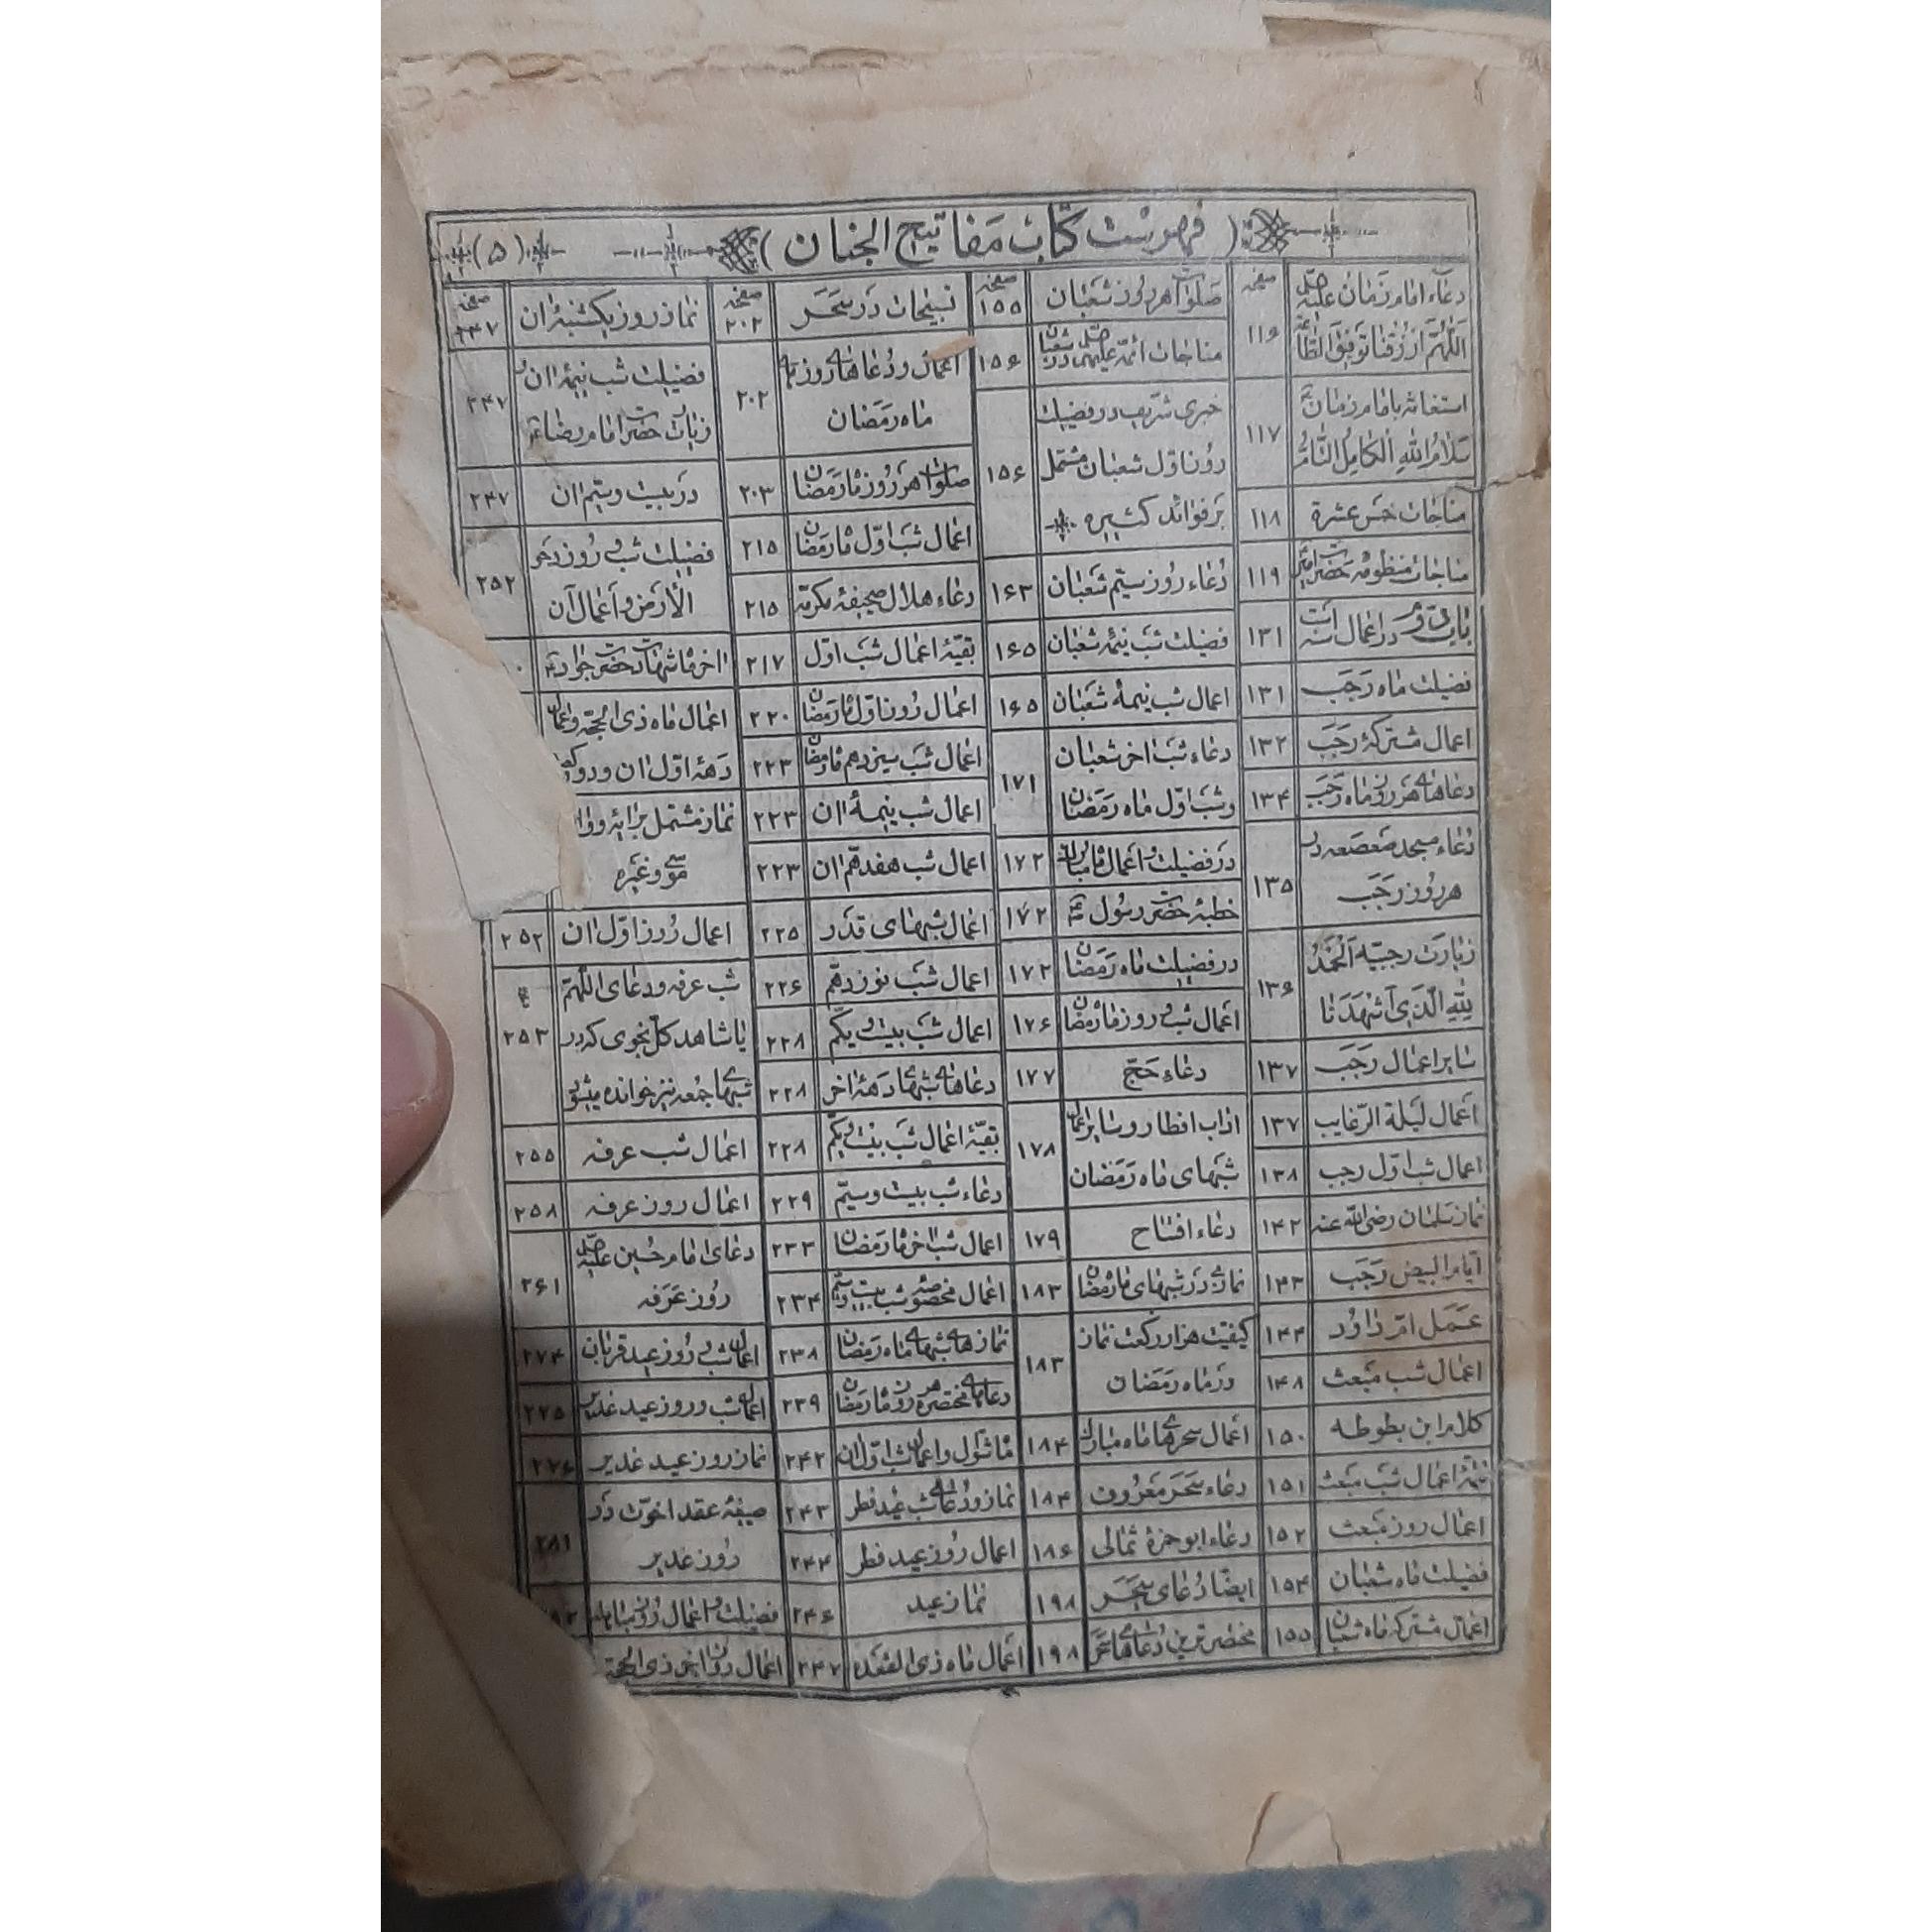 (فهرست کتاب مفاتیح الجنان)
(۵)
دعاء امام زمان علیه
صفحه
اللّهُمَّ ارْزُقْنا تَوْفیقَ الطّاعَة ۱۱۶
استغاثه بامام زمان
سَلامُ اللهِ الْکامِلُ التّامُّ ۱۱۷
مناجات خمس عشرة ۱۱۸
مناجات منظومه حضرت امیر ۱۱۹
باب دوم در اعمال سنه است ۱۳۱
فضیلت ماه رجب ۱۳۱
اعمال مشترکهٔ رجب ۱۳۲
دعاهای هر روز ماه رجب ۱۳۴
دعاء مسجد صعصعه در
هر روز رجب ۱۳۵
زیارت رجبیه اَلْحَمْدُ
لِلّهِ الَّذی اَشْهَدَنا ۱۳۶
سایر اعمال رجب ۱۳۷
اعمال لیلة الرغایب ۱۳۷
اعمال شب اول رجب ۱۳۸
نماز سلمان رضی الله عنه ۱۴۲
ایام البیض رجب ۱۴۳
عمل ام داود ۱۴۴
اعمال شب مبعث ۱۴۸
کلام ابن بطوطه ۱۵۰
تتمهٔ اعمال شب مبعث ۱۵۱
اعمال روز مبعث ۱۵۲
فضیلت ماه شعبان ۱۵۴
اعمال مشترکه ماه شعبان ۱۵۵
صفحه
صلوات هر روز شعبان ۱۵۵
مناجات ائمه علیهم در شعبان ۱۵۶
خبری شریف در فضیلت
روز اول شعبان مشتمل ۱۵۶
بر فوائد کثیره
دعاء روز سیم شعبان ۱۶۳
فضیلت شب نیمهٔ شعبان ۱۶۵
اعمال شب نیمهٔ شعبان ۱۶۵
دعاء شب اخر شعبان
و شب اول ماه رمضان ۱۷۱
در فضیلت و اعمال ماه مبارک ۱۷۲
خطبهٔ حضرت رسول ۱۷۲
در فضیلت ماه رمضان ۱۷۲
اعمال شب و روز ماه رمضان ۱۷۶
دعاء حج ۱۷۷
اداب افطار و سایر اعمال
شبهای ماه رمضان ۱۷۸
دعاء افتتاح ۱۷۹
نماز در شبهای ماه رمضان ۱۸۳
کیفیت هزار رکعت نماز
در ماه رمضان ۱۸۳
اعمال سحرهای ماه مبارک ۱۸۴
دعاء سحر معروف ۱۸۴
دعاء ابو حمزهٔ ثمالی ۱۸۶
ایضا دعای سحر ۱۹۸
مختصرترین دعاهای سحر ۱۹۸
صفحه
تسبیحات در سحر ۲۰۲
اعمال و دعاهای روزهای
ماه رمضان ۲۰۲
صلوات هر روز ماه رمضان ۲۰۳
اعمال شب اول ماه رمضان ۲۱۵
دعاء هلال صحیفهٔ مکرمه ۲۱۵
بقیهٔ اعمال شب اول ۲۱۷
اعمال روز اول ماه رمضان ۲۲۰
اعمال شب سیزدهم ماه رمضان ۲۲۳
اعمال شب نیمهٔ ان ۲۲۳
اعمال شب هفدهم ان ۲۲۳
اعمال شبهای قدر ۲۲۵
اعمال شب نوزدهم ۲۲۶
اعمال شب بیست و یکم ۲۲۸
دعاهای شبهای دههٔ اخر ۲۲۸
بقیهٔ اعمال شب بیست و یکم ۲۲۸
دعاء شب بیست و سیم ۲۲۹
اعمال شب اخر ماه رمضان ۲۳۳
اعمال مخصوصه شب بیست و سیم ۲۳۴
نمازهای شبهای ماه رمضان ۲۳۸
دعاهای مختصره هر روز ماه رمضان ۲۳۹
ماه شوال و اعمال شب اول ان ۲۴۲
نماز و دعای شب عید فطر ۲۴۳
اعمال روز عید فطر ۲۴۴
نماز عید ۲۴۶
اعمال ماه ذی القعده ۲۴۷
صفحه
نماز روز یکشنبهٔ ان ۲۴۷
فضیلت شب نیمهٔ ان و
زیارت حضرت امام رضا ۲۴۷
در بیست و سیم ان ۲۴۷
فضیلت شب و روز دحو
الأرض و اعمال آن ۲۵۲
اخر ماه شهادت حضرت جواد
اعمال ماه ذی الحجه و اعمال
دههٔ اول ان و دو
نماز مشتمل بر ایهٔ و وا
موسی و غیره
اعمال روز اول ان ۲۵۲
شب عرفه و دعای اللهم
یا شاهد کل نجوی که در ۲۵۳
شبهای جمعه نیز خوانده میشود
اعمال شب عرفه ۲۵۵
اعمال روز عرفه ۲۵۸
دعای امام حسین علیه
روز عرفه ۲۶۱
اعمال شب و روز عید قربان ۲۷۴
اعمال شب و روز عید غدیر ۲۷۵
نماز روز عید غدیر ۲۷۶
صیغهٔ عقد اخوت در
روز غدیر ۲۸۱
فضیلت و اعمال روز مباهله
اعمال روز اخر ذی الحجه